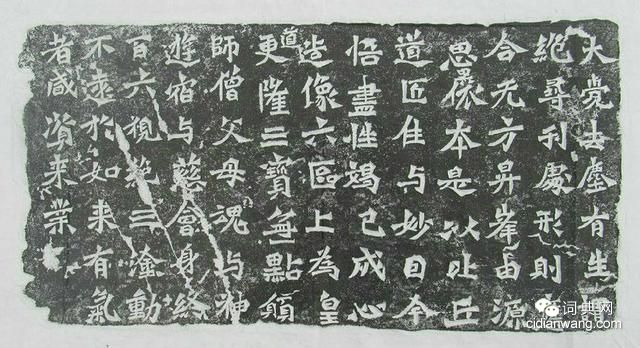 大覺去塵有生
絕尋刹處形則
合无方昇峯由源
思本是以比丘
道匠住与妙因今
悟盡性竭己成心
造像六區上為皇
道更隆三寶無點願
師僧父母魂与神
遊宿与慈會身終
百六視絕三塗動
不遠於如来有氣
者咸資来業
词典网
cidianwang.com